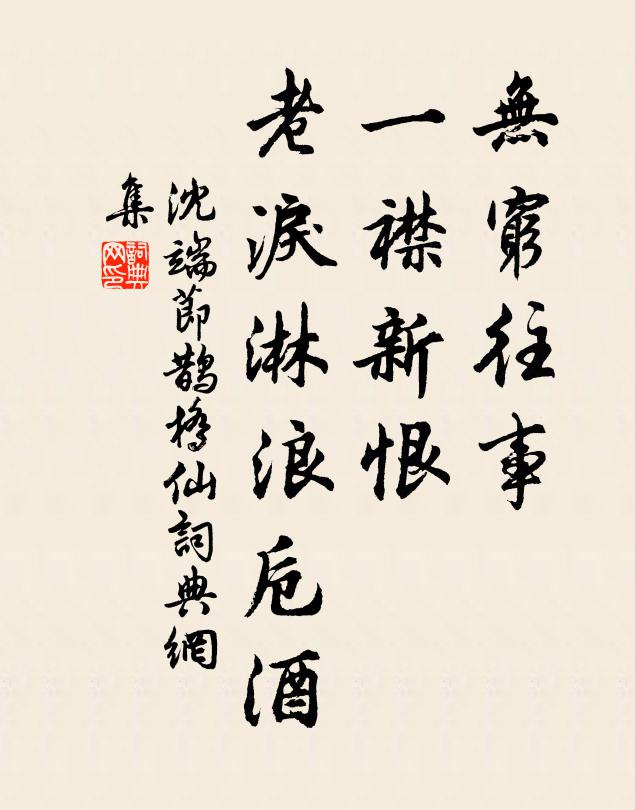 無窮往事
一襟新恨
老淚淋浪卮酒
沈端節鵲橋仙詞典網
集
詞典
网印